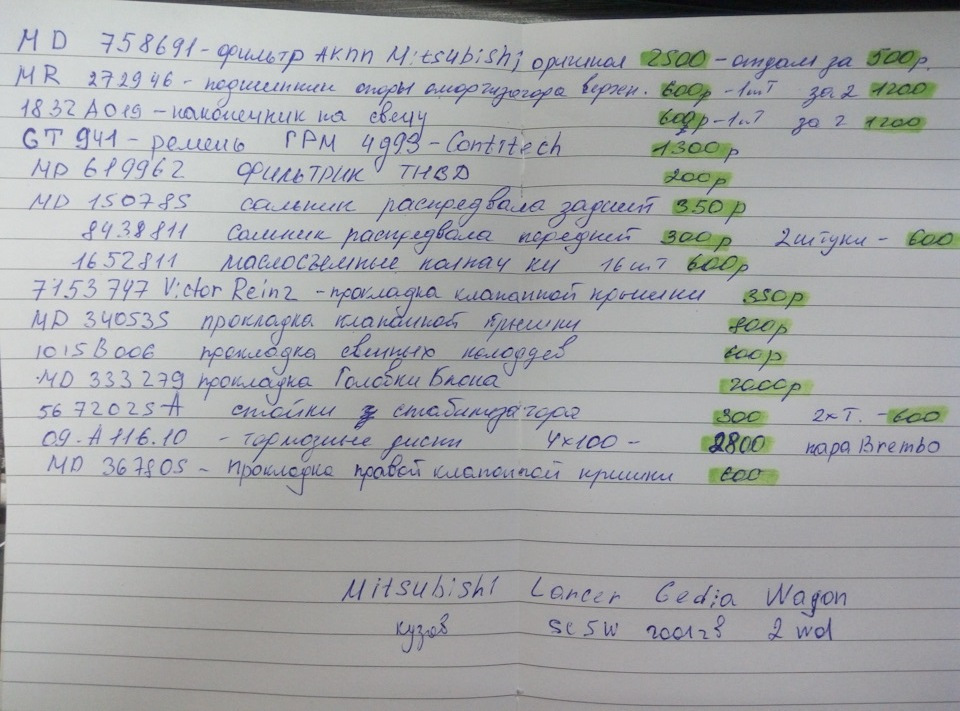 MD 758691 - фильтр АКПП Mitsubishi оригинал 2500 - отдам за 500р.
MR 272946 - подшипники опоры амортизатора верхн. 600р - 1шт за 2 1200
1832A019 - наконечник на свечу 600р - 1шт за 2 1200
CT 941 - ремень ГРМ 4g93 - Contitech 1300р
MD 619962 фильтрик ТНВД 200р
MD 150785 сальник распредвала задний 350р
8438811 сальник распредвала передний 300р 2 штуки - 600
1652811 маслосъемные колпачки 16 шт 600р
7153747 Victor Reinz - прокладка клапанной крышки 350р
MD 340535 прокладка клапанной крышки 800р
1015B006 прокладка свечных колодцев 600р
MD 333279 прокладка Головки Блока 2000р
5672025A стойки стабилизатора 300 2шт. - 600
09.A116.10 - тормозные диски 4x100 - 2800 пара Brembo
MD 367805 - прокладка правой клапанной крышки 600
Mitsubishi Lancer Cedia Wagon
кузов SC5W 2001гв 2 wd